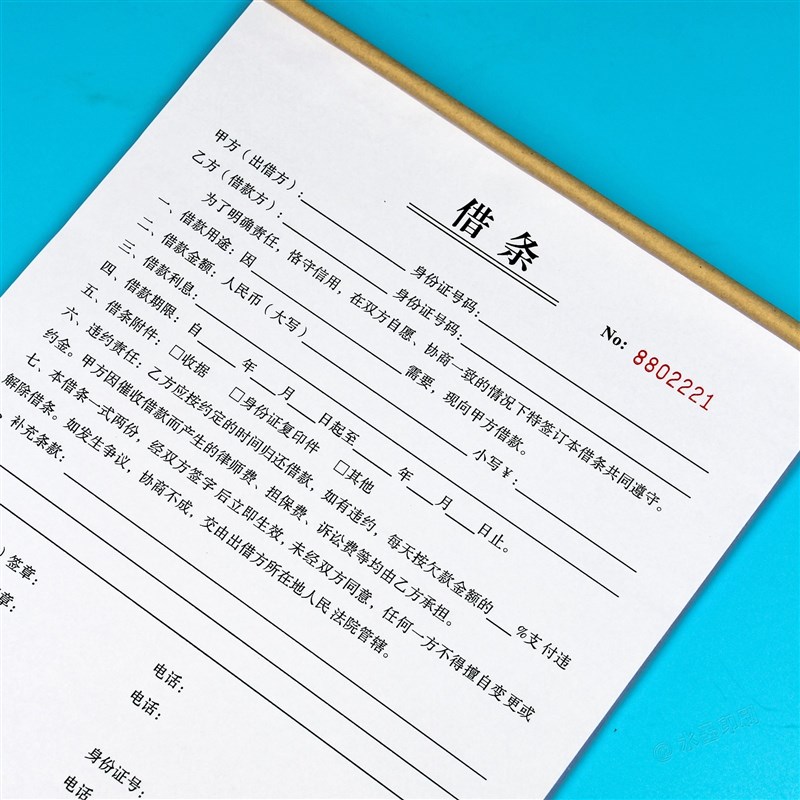 借条
No: 8802221
甲方（出借方）：________ 身份证号码：________
乙方（借款方）：________ 身份证号码：________
为了明确责任，恪守信用，在双方自愿、协商一致的情况下特签订本借条共同遵守。
一、借款用途：因________需要，现向甲方借款。
二、借款金额：人民币（大写）________小写￥：________
三、借款利息：________
四、借款期限：自____年____月____日起至____年____月____日止。
五、借条附件：□收据 □身份证复印件 □其他________
六、违约责任：乙方应按约定的时间归还借款，如有违约，每天按欠款金额的___%支付违
约金。甲方因催收借款而产生的律师费、担保费、诉讼费等均由乙方承担。
七、本借条一式两份，经双方签字后立即生效，未经双方同意，任何一方不得擅自变更或
解除借条。如发生争议，协商不成，交由出借方所在地人民法院管辖。
、补充条款：________
）签章：
章：
电话：
电话：
身份证号：
电话